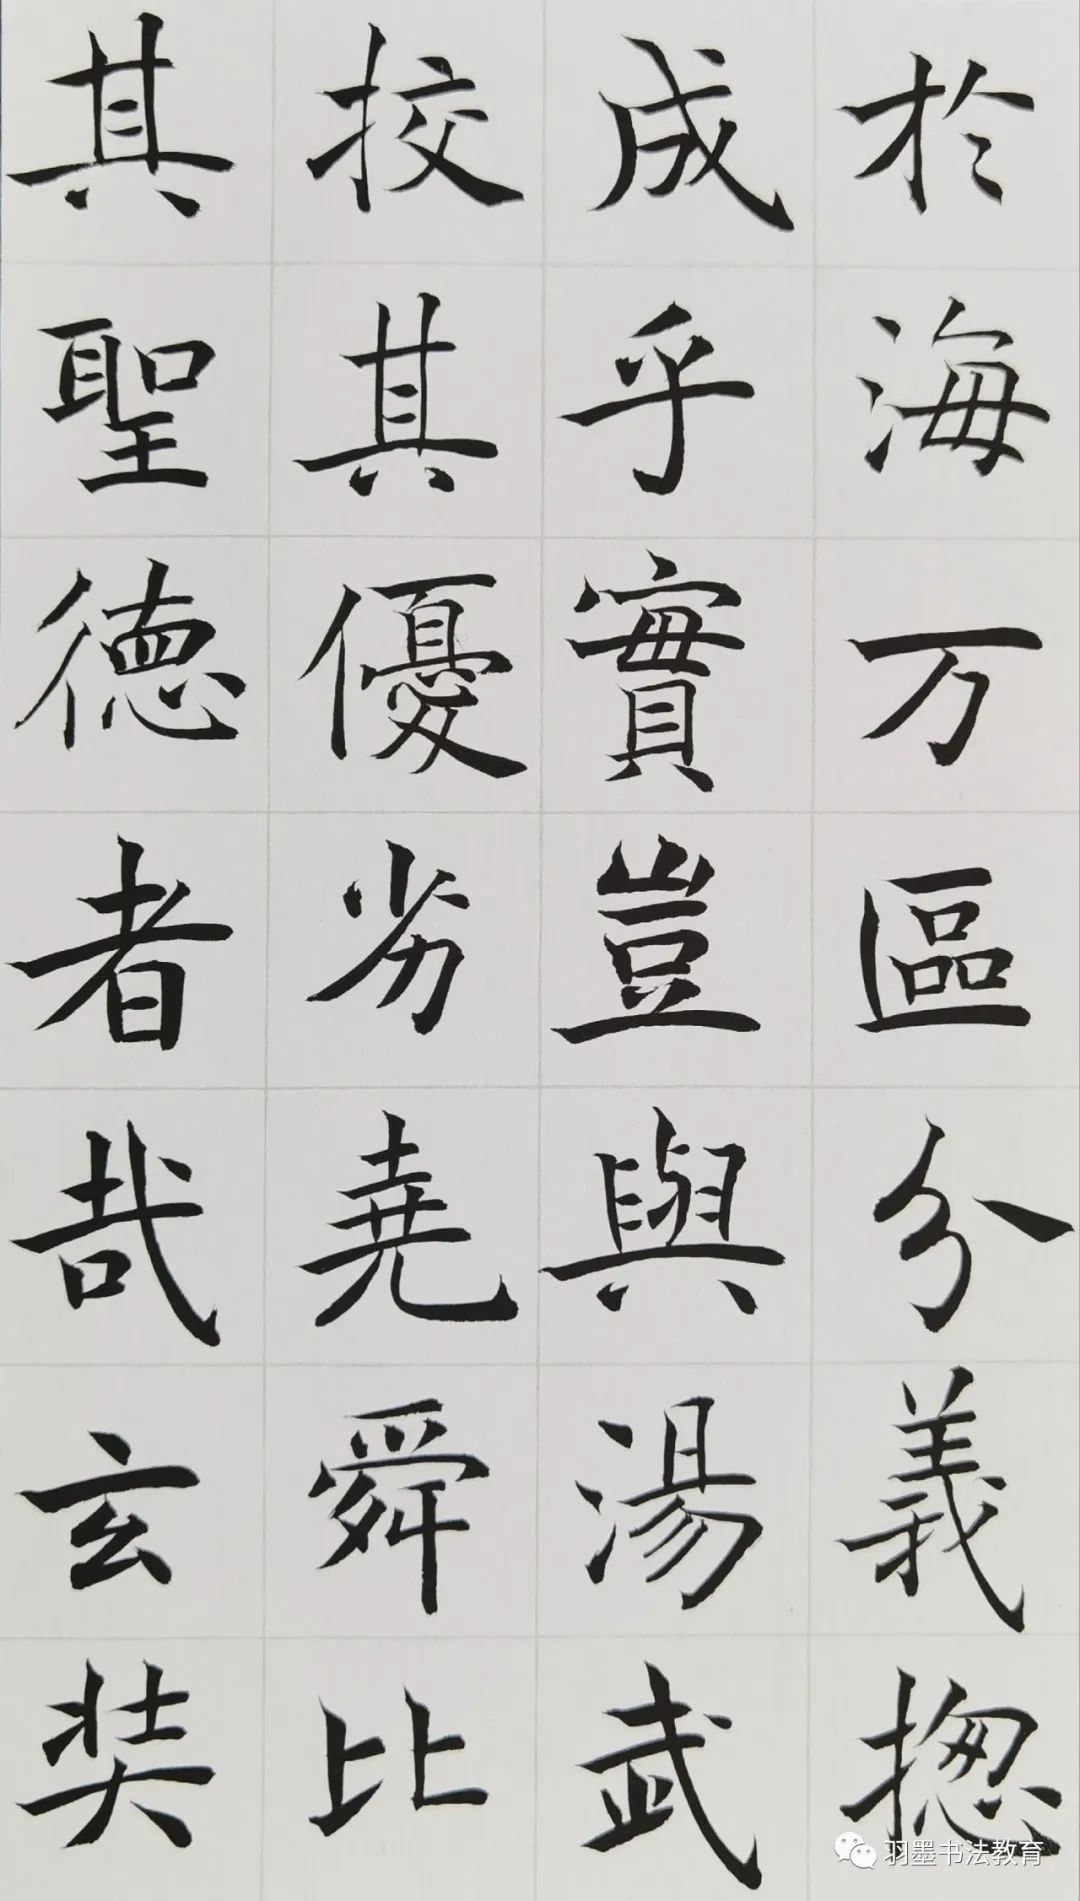 於海万區分義揔
成乎實豈與湯武
挍其優劣堯舜比
其聖德者哉玄奘
羽墨书法教育